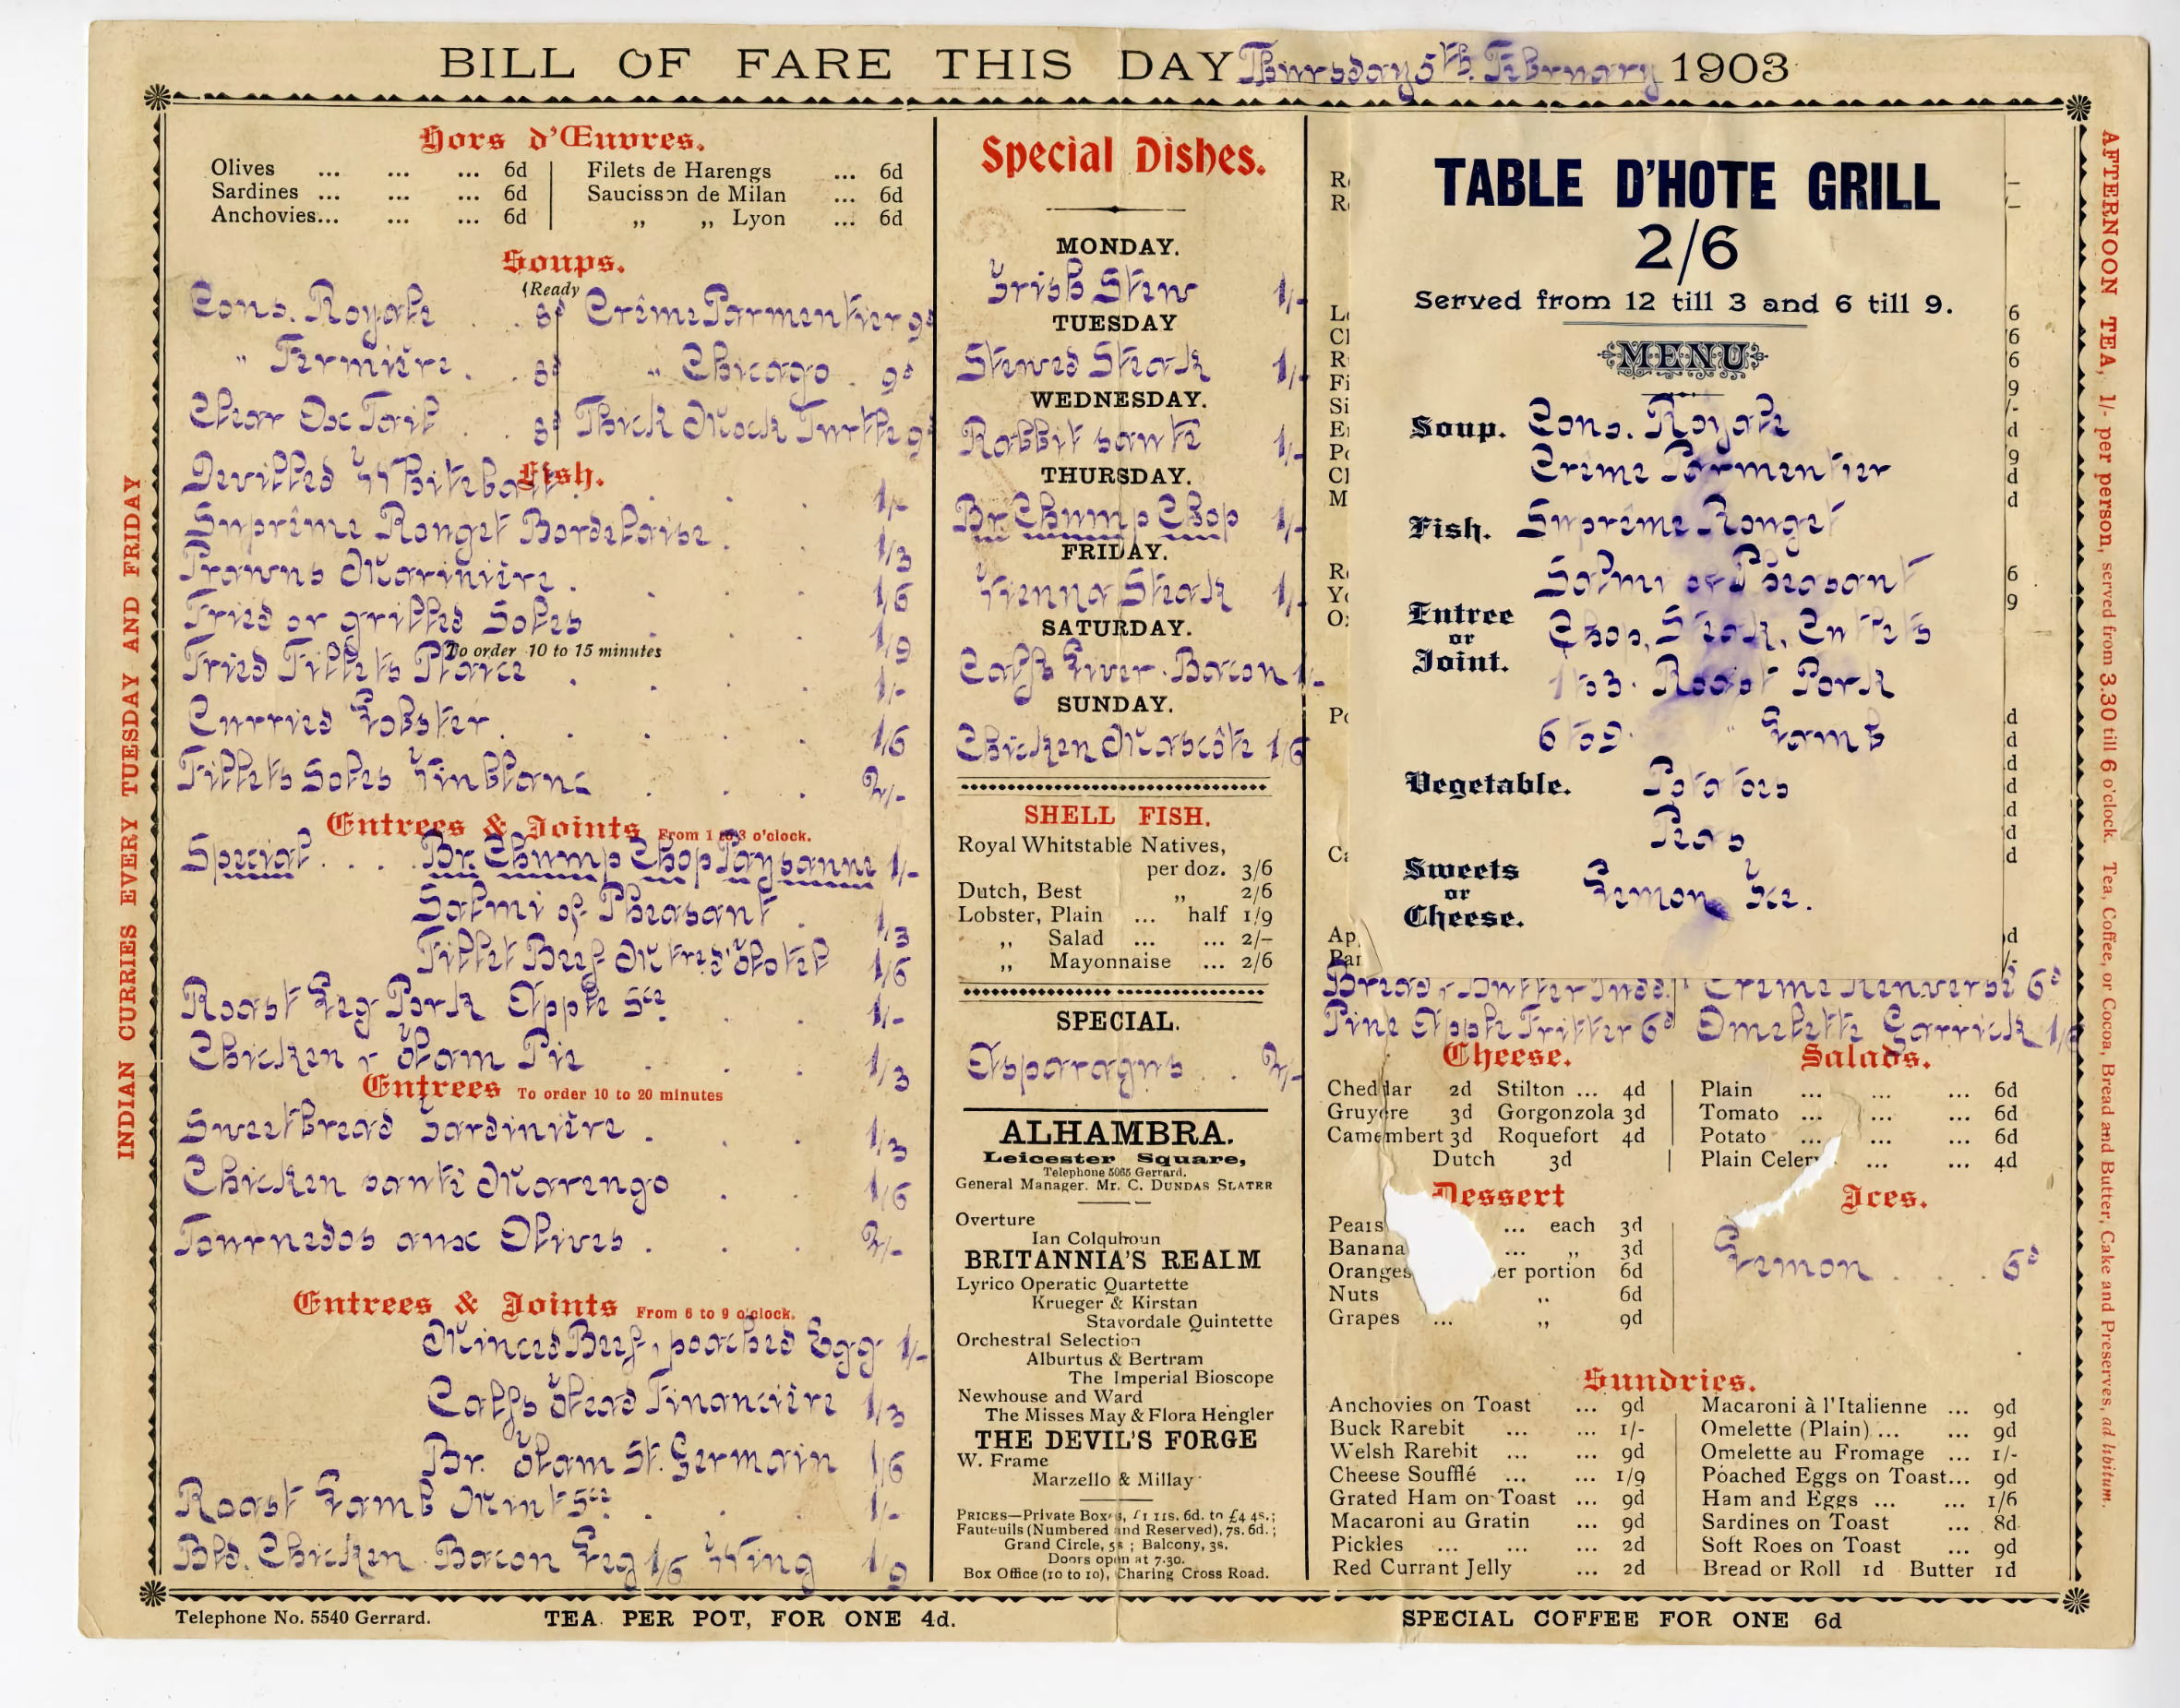 BILL OF FARE THIS DAY Thursday 5th. February 1903
Hors d'Œuvres.
Olives ... ... ... 6d
Sardines ... ... ... 6d
Anchovies... ... ... 6d
Filets de Harengs ... 6d
Saucisson de Milan ... 6d
„ „ Lyon ... 6d
Soups.
(Ready
Cons. Royale . . 8d
" Fermière . . 8d
Clear Ox Tail . . 8d
Crême Parmentier 9d
" Chicago . 9d
Thick Mock Turtle 9d
Fish.
Devilled Whitebait . . . 1/-
Suprême Rouget Bordelaise . . 1/3
Prawns Marinière . . . 1/6
Fried or grilled Soles . . 1/9
To order 10 to 15 minutes
Fried Fillets Plaice . . . 1/-
Curried Lobster . . . . 1/6
Fillets Soles Vin blanc . . . 2/-
Entrees & Joints From 1 to 3 o'clock.
Special . . . Br. Chump Chop Paysanne 1/-
Salmi of Pheasant . 1/3
Fillet Beef Mtred'Hotel 1/6
Roast Leg Pork Apple Sce . . 1/-
Chicken & Ham Pie . . . 1/3
Entrees To order 10 to 20 minutes
Sweetbread Jardinière . . . 1/3
Chicken sauté Marengo . . 1/6
Tournedos aux Olives . . . 2/-
Entrees & Joints From 6 to 9 o'clock.
Minced Beef, poached Egg 1/-
Calfs Head Financière 1/3
Br. Ham St. Germain 1/6
Roast Lamb Mint Sce . . . 1/-
Bld. Chicken. Bacon Leg 1/6 Wing 1/9
Special Dishes.
MONDAY.
Irish Stew 1/-
TUESDAY
Stewed Steak 1/-
WEDNESDAY.
Rabbit sauté 1/-
THURSDAY.
Br. Chump Chop 1/-
FRIDAY.
Vienna Steak 1/-
SATURDAY.
Calfs Liver. Bacon 1/-
SUNDAY.
Chicken Mascôte 1/6
SHELL FISH.
Royal Whitstable Natives,
per doz. 3/6
Dutch, Best „ 2/6
Lobster, Plain ... half 1/9
„ Salad ... ... 2/–
„ Mayonnaise ... 2/6
SPECIAL.
Asparagus . . 2/-
ALHAMBRA.
Leicester Square,
Telephone 5065 Gerrard.
General Manager. Mr. C. DUNDAS SLATER
Overture
Ian Colquhoun
BRITANNIA'S REALM
Lyrico Operatic Quartette
Krueger & Kirstan
Stavordale Quintette
Orchestral Selection
Alburtus & Bertram
The Imperial Bioscope
Newhouse and Ward
The Misses May & Flora Hengler
THE DEVIL'S FORGE
W. Frame
Marzello & Millay
PRICES—Private Boxes, £1 11s. 6d. to £4 4s.;
Fauteuils (Numbered and Reserved), 7s. 6d.;
Grand Circle, 5s ; Balcony, 3s.
Doors open at 7-30.
Box Office (10 to 10), Charing Cross Road.
TABLE D'HOTE GRILL
2/6
Served from 12 till 3 and 6 till 9.
MENU
Soup. Cons. Royale
Crême Parmentier
Fish. Suprême Rouget
Salmi of Pheasant
Entree or Joint. Chop, Steak, Cutlets
1 to 3. Roast Pork
6 to 9. " Lamb
Vegetable. Potatoes
Peas
Sweets or Cheese. Lemon Ice.
Bread & Butter Pudd. Crême Renversé 6d
Pine Apple Fritter 6d Omelette Garrick
Cheese.
Cheddar 2d Stilton ... 4d
Gruyere 3d Gorgonzola 3d
Camembert 3d Roquefort 4d
Dutch 3d
Salads.
Plain ... ... ... 6d
Tomato ... ... ... 6d
Potato ... ... ... 6d
Plain Celery ... ... 4d
Dessert
Pears ... each 3d
Banana ... „ 3d
Oranges per portion 6d
Nuts „ 6d
Grapes ... „ 9d
Ices.
Lemon . . . . 6d
Sundries.
Anchovies on Toast ... 9d
Buck Rarebit ... ... 1/-
Welsh Rarebit ... ... 9d
Cheese Soufflé ... ... 1/9
Grated Ham on Toast ... 9d
Macaroni au Gratin ... 9d
Pickles ... ... ... 2d
Red Currant Jelly ... 2d
Macaroni à l'Italienne ... 9d
Omelette (Plain) ... ... 9d
Omelette au Fromage ... 1/-
Poached Eggs on Toast... 9d
Ham and Eggs ... ... 1/6
Sardines on Toast ... 8d
Soft Roes on Toast ... 9d
Bread or Roll 1d Butter 1d
Telephone No. 5540 Gerrard. TEA PER POT, FOR ONE 4d. SPECIAL COFFEE FOR ONE 6d
INDIAN CURRIES EVERY TUESDAY AND FRIDAY
AFTERNOON TEA, 1/- per person, served from 3.30 till 6 o'clock. Tea, Coffee, or Cocoa, Bread and Butter, Cake and Preserves, ad libitum.